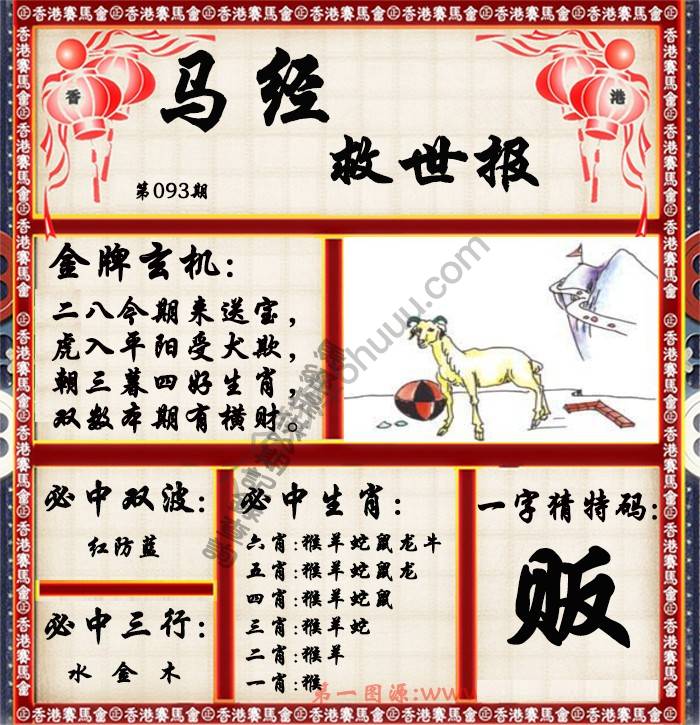 香港賽馬會
香
港
马经
救世报
第093期
金牌玄机:
二八今期来送宝,
虎入平阳受犬欺,
朝三暮四好生肖,
双数本期有横财。
必中双波:
红防蓝
必中三行:
水 金 木
必中生肖:
六肖:猴羊蛇鼠龙牛
五肖:猴羊蛇鼠龙
四肖:猴羊蛇鼠
三肖:猴羊蛇
二肖:猴羊
一肖:猴
一字猜特码:
贩
第一图源:www.